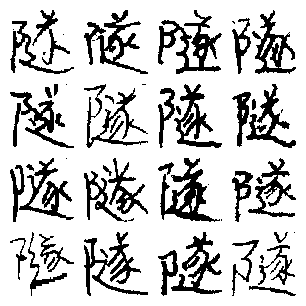 隧隧隧隧
隧隧隧隧
隧隧隧隧
隧隧隧隧